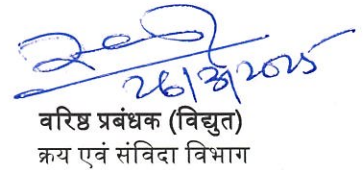 26/3/2025
वरिष्ठ प्रबंधक (विद्युत)
क्रय एवं संविदा विभाग